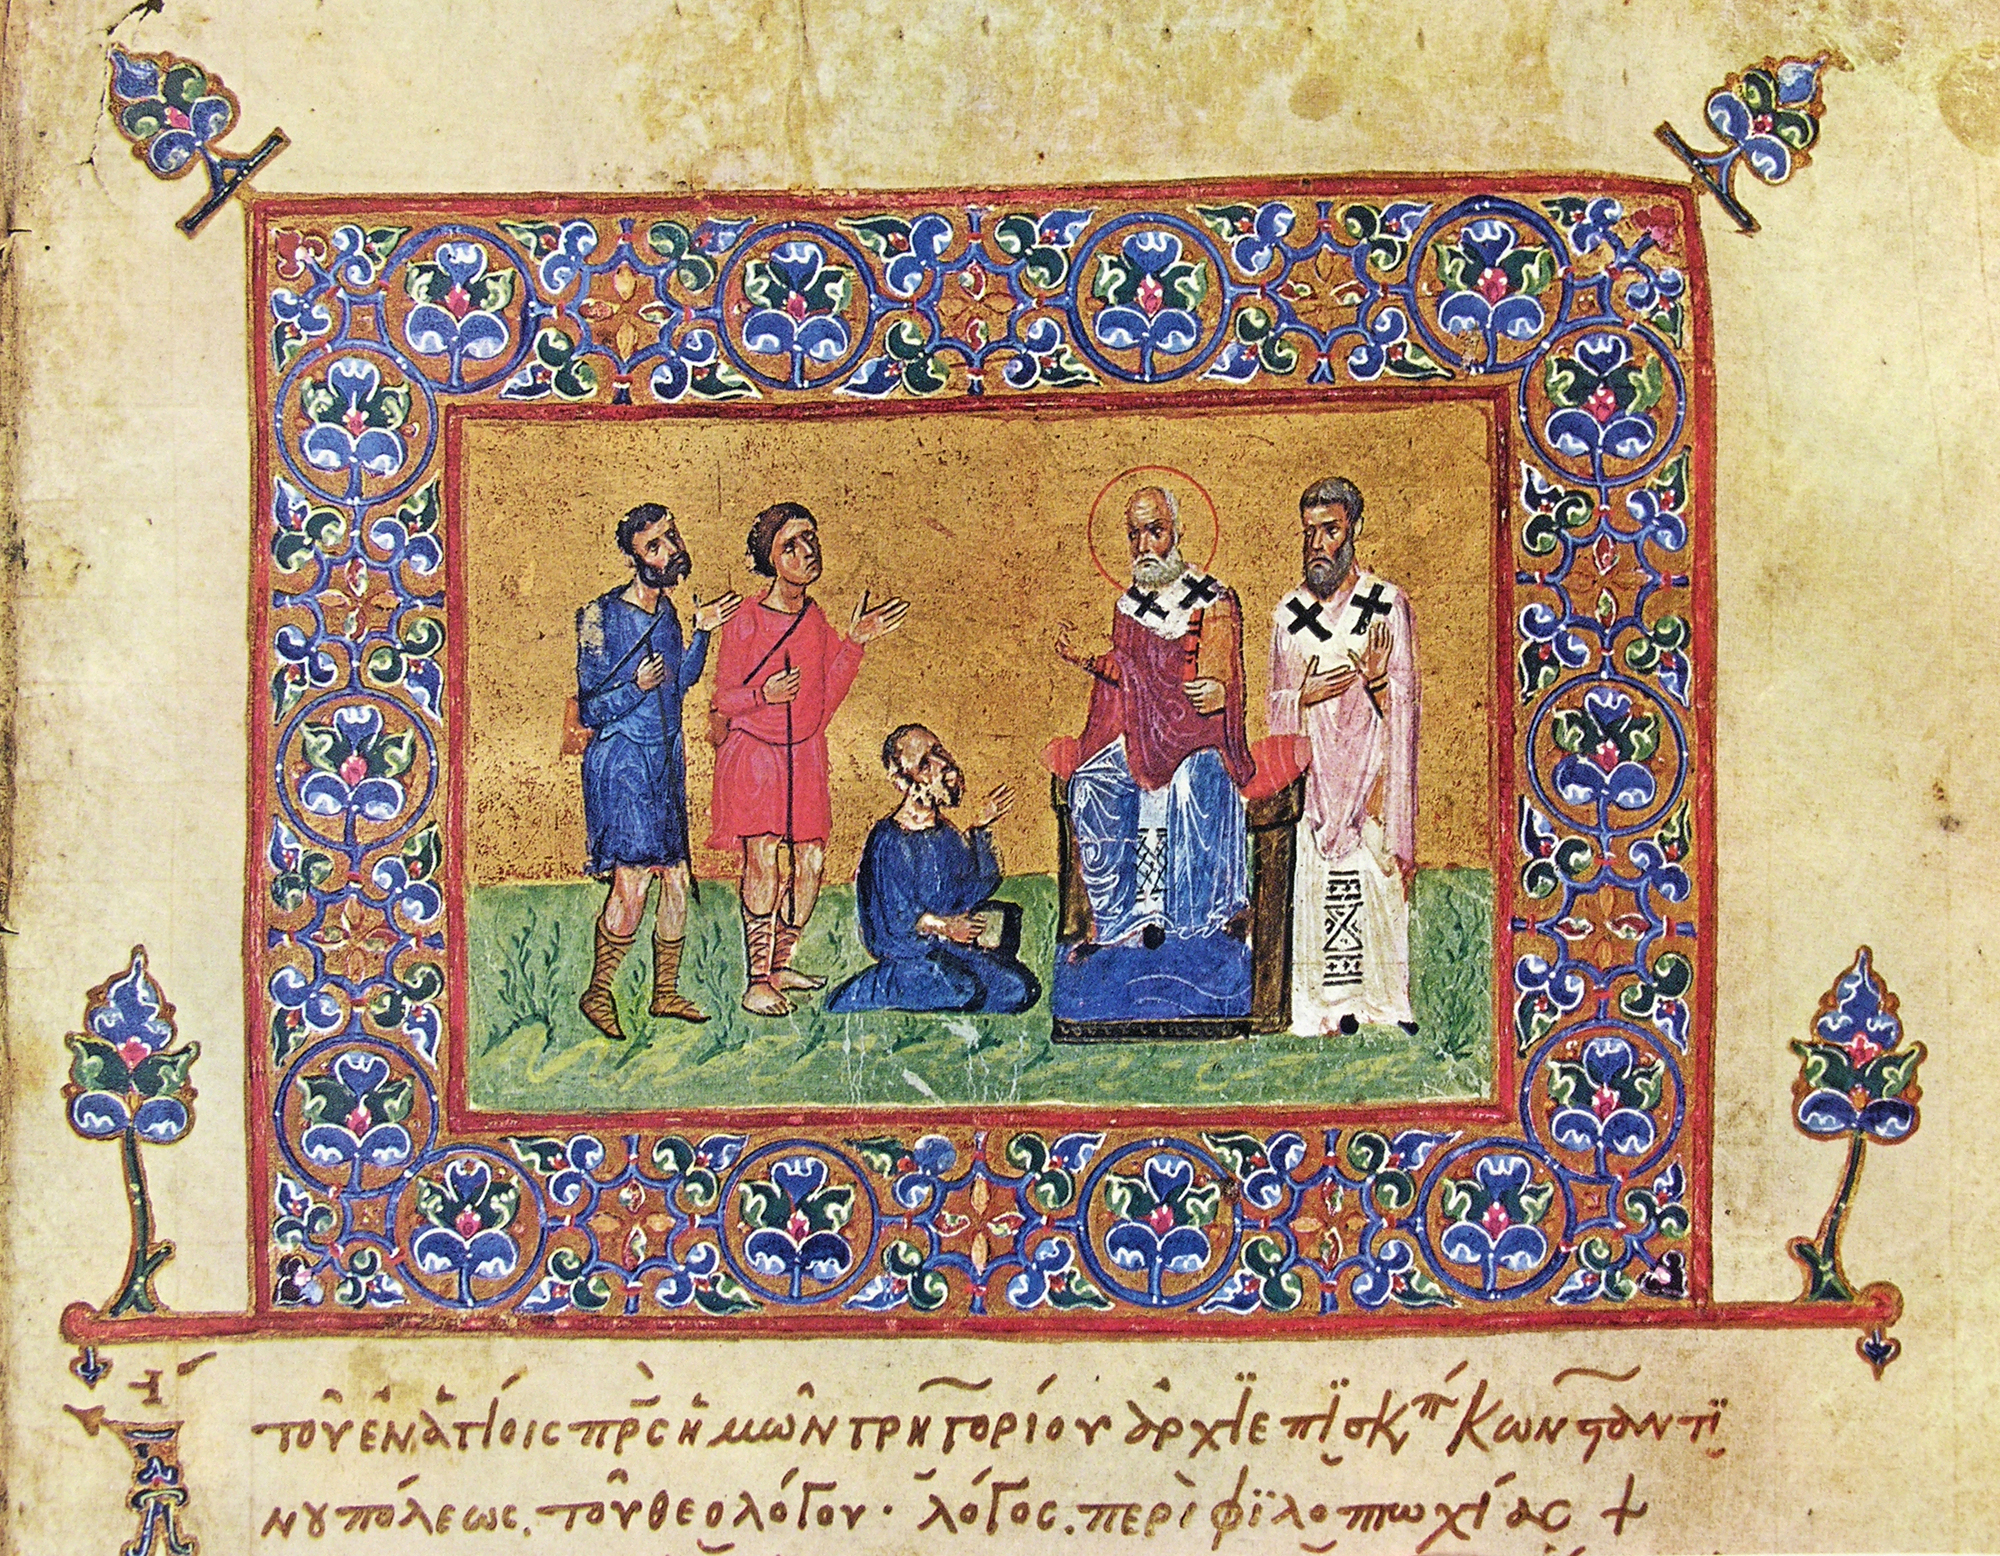 τοῦ ἐν ἁγίοις πρς ἡμῶν γρηγορίου ἀρχϊεπϊσκπ κωνσταντϊ
νουπόλεως. τοῦ θεολόγου · λόγος. περὶ φϊλοπτωχίας +